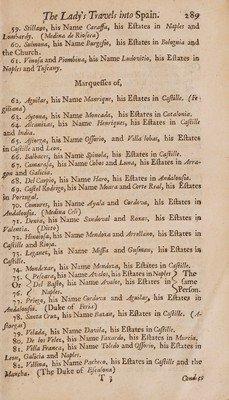 The Lady's Travels into Spain. 289
59. Stillano, his Name Caraffa, his Estates in Naples and
Lombardy. (Medina de Rioseca)
60. Sulmona, his Name Burghese, his Estates in Bologna and
the Church.
61. Venosa and Piombina, his Name Ludovitio, his Estates in
Naples and Tuscany.
Marquesses of,
62. Aguilar, his Name Manrique, his Estates in Castille.
giliana)
63. Aytona, his Name Moncada, his Estates in Catalonia.
64. his Name Henriquez, his Estates in Castille
and India.
65. Astorga, his Name Ossorio, and Villa lobos, his Estates
in Castille and Leon.
66. Balbases, his Name Spinola, his Estates in Castille.
67. Camarasa, his Name Cobos and Luna, his Estates in Arra-
gon and Galicia.
68. Del Carpio, his Name Haro, his Estates in Andalousia.
69. Castel Rodrigo, his Name Moura and Corte Real, his Estates
in Portugal.
70. Comares, his Name Ayala and Cordoua, his Estates in
Andalousia. (Medina Celi)
71. Denia, his Name Sandoval and Roxas, his Estates in
Valentia. (Ditto)
72. Hinoiosa, his Name Mendoza and Arrellano, his Estates in
Castille and Rioja.
73. Leganez, his Name Messia and Gusman, his Estates in
Castille.
74. Mondexar, his Name Mendoza, his Estates in Castille.
75. Pescara, his Name Avalos, his Estates in Naples } The
Or Del Basto, his Name Avalos, his Estates in } same
76. Naples. } Person.
77. Priego, his Name Cordoua and Aguilar, his Estates in
Andalousia. (Duke of Feria)
78. Santa Cruz, his Name Bazan, his Estates in Castille. (A-
storgas)
79. Velada, his Name Davila, his Estates in Castille.
80. De los Velez, his Name Faxardo, his Estates in Murcia.
81. Villa Franca, his Name Toledo and Ossorio, his Estates in
Leon, Galicia and Naples.
82. Villena, his Name Pacheco, his Estates in Castille and the
Mancha. (The Duke of Escalona)
T